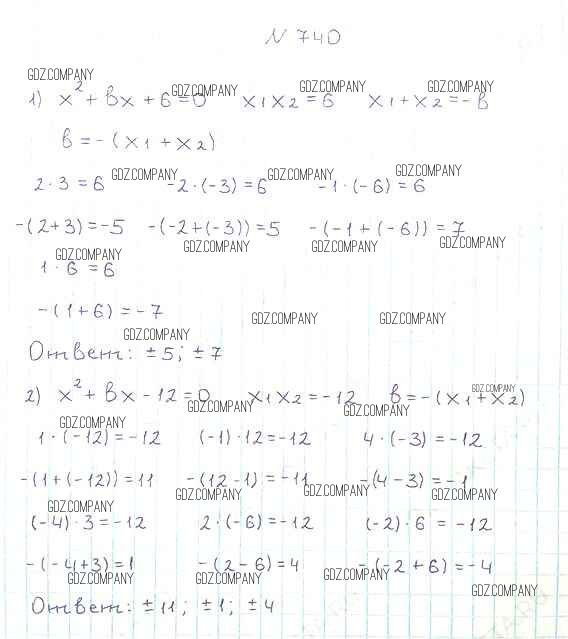 N 740
GDZ.COMPANY
1) x² + bx + 6 = 0 x₁x₂ = 6 x₁ + x₂ = -b
GDZ.COMPANY GDZ.COMPANY GDZ.COMPANY
b = -(x₁ + x₂)
GDZ.COMPANY GDZ.COMPANY GDZ.COMPANY
2·3 = 6 -2·(-3) = 6 -1·(-6) = 6
-(2+3) = -5 -(-2+(-3)) = 5 -(-1+(-6)) = 7
GDZ.COMPANY GDZ.COMPANY GDZ.COMPANY GDZ.COMPANY
1·6 = 6
-(1+6) = -7
GDZ.COMPANY GDZ.COMPANY GDZ.COMPANY
Ответ: ±5; ±7
2) x² + bx - 12 = 0 x₁x₂ = -12 b = -(x₁ + x₂)
GDZ.COMPANY GDZ.COMPANY GDZ.COMPANY
GDZ.COMPANY
1·(-12) = -12 (-1)·12 = -12 4·(-3) = -12
-(1+(-12)) = 11 -(12-1) = -11 -(4-3) = -1
GDZ.COMPANY GDZ.COMPANY GDZ.COMPANY GDZ.COMPANY
(-4)·3 = -12 2·(-6) = -12 (-2)·6 = -12
-(-4+3) = 1 -(2-6) = 4 -(-2+6) = -4
GDZ.COMPANY GDZ.COMPANY GDZ.COMPANY GDZ.COMPANY
Ответ: ±11; ±1; ±4